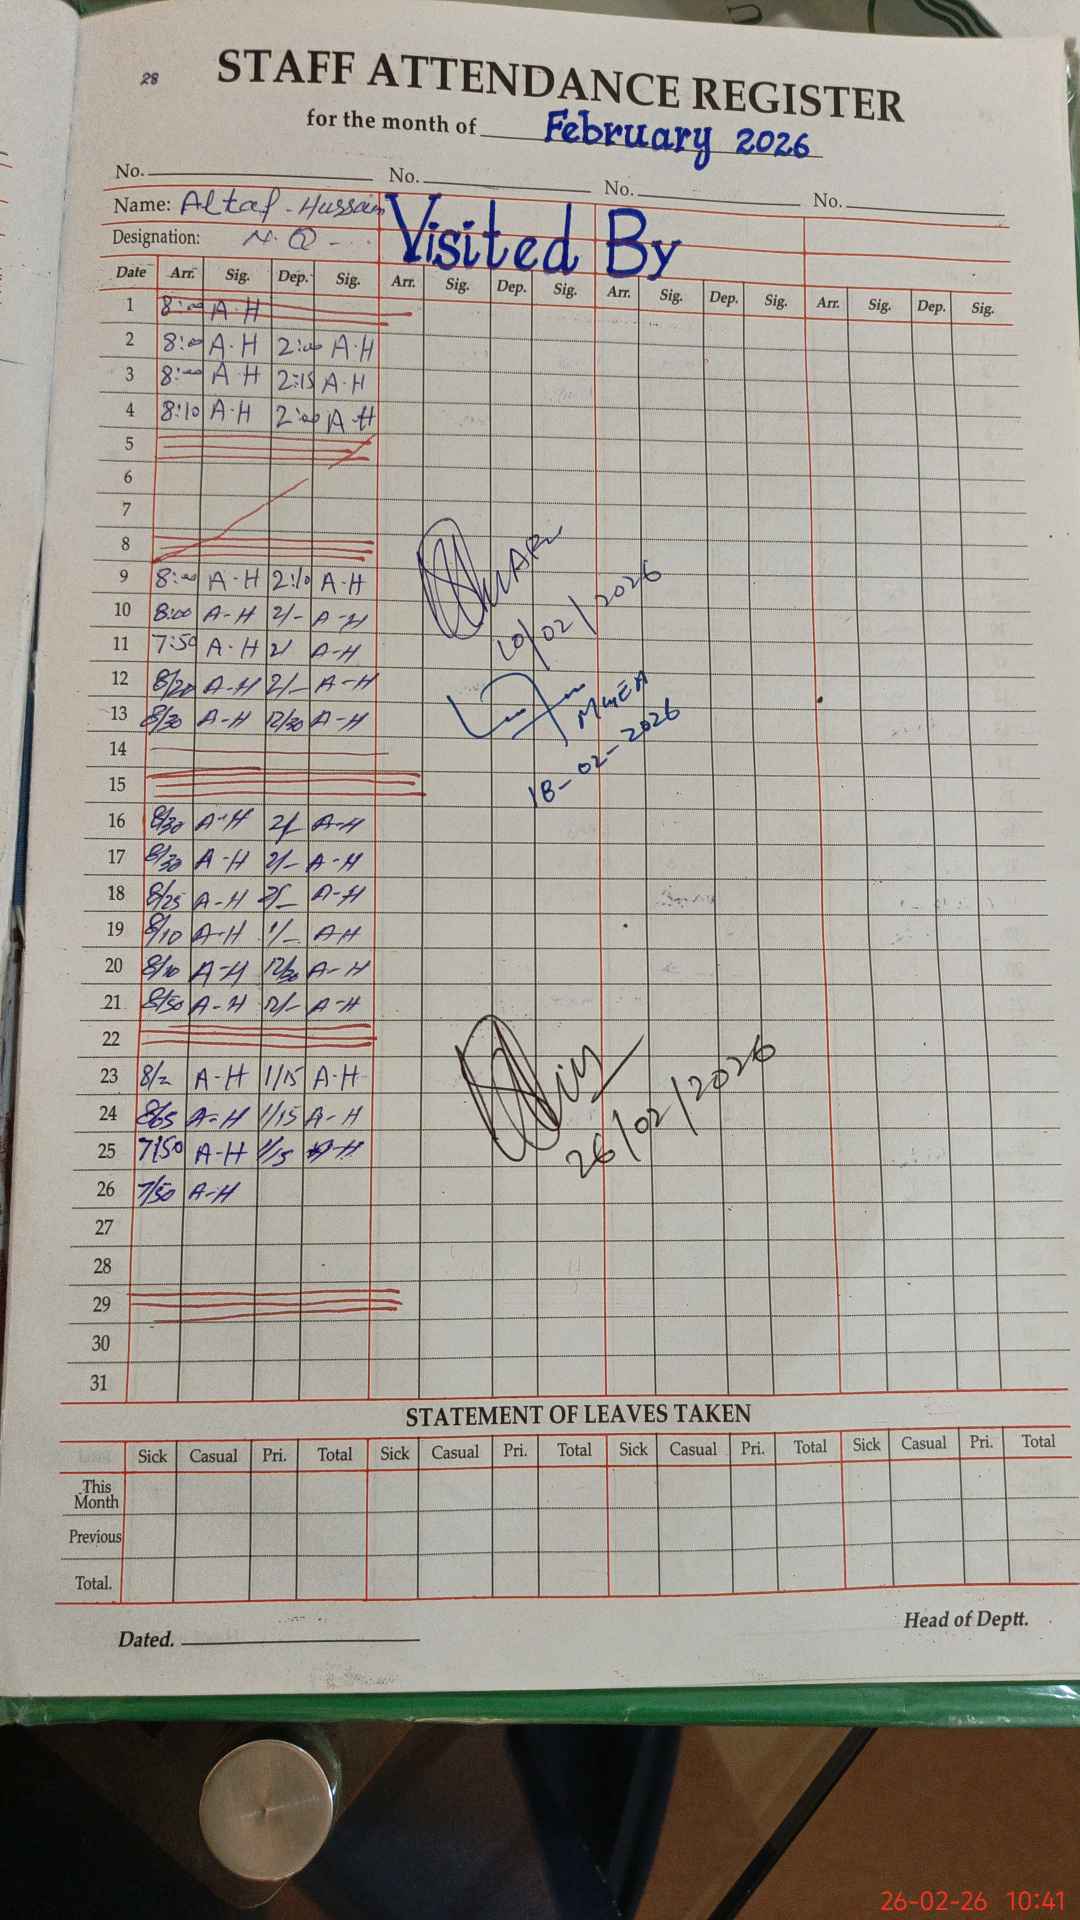 28
STAFF ATTENDANCE REGISTER
for the month of February 2026
No. No. No. No.
Name: Altaf-Hussain Visited By
Designation: N.Q
Date Arr. Sig. Dep. Sig. Arr. Sig. Dep. Sig. Arr. Sig. Dep. Sig. Arr. Sig. Dep. Sig.
1 8:00 A-H
2 8:00 A-H 2:00 A-H
3 8:00 A-H 2:15 A-H
4 8:10 A-H 2:00 A-H
5
6
7
8
9 8:00 A-H 2:10 A-H
10 8:00 A-H 2/- A-H
10/02/2026
11 7:50 A-H 2/ A-H
12 8/20 A-H 2/- A-H
MWEA
13 8/30 A-H 12/30 A-H
18-02-2026
14
15
16 8/30 A-H 2/ A-H
17 8/30 A-H 2/- A-H
18 8/25 A-H A-H
19 8/10 A-H 1/- AH
20 8/10 A-H 12/30 A-H
21 8/50 A-H 12/- A-H
22
23 A-H 1/15 A-H
24 A-H 1/15 A-H
26/02/2026
25 7/50 A-H 1/15 A-H
26 7/50 A-H
27
28
29
30
31
STATEMENT OF LEAVES TAKEN
Sick Casual Pri. Total Sick Casual Pri. Total Sick Casual Pri. Total Sick Casual Pri. Total
This
Month
Previous
Total.
Dated. Head of Deptt.
26-02-26 10:41